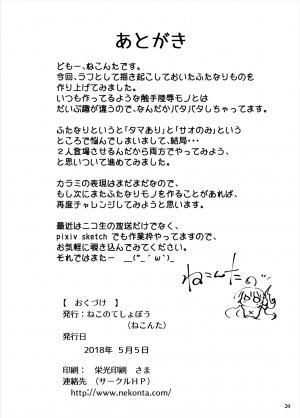 あとがき
どもー、ねこんたです。
今回、ラフとして描き起こしておいたふたなりものを
作り上げてみました。
いつも作ってるような触手陵辱モノとは
だいぶ趣が違うので、なんだかバタバタしちゃってます。
ふたなりというと「タマあり」と「サオのみ」という
ところで悩んでしまいまして、結局・・・
2人登場させるんだから両方でやってみよう、
と思いついて進めてみました。
カラミの表現はまだまだなので、
もし次にまたふたなりモノを作ることがあれば、
再度チャレンジしてみようと思います。
最近はニコ生の放送だけでなく、
pixiv sketch でも作業枠やってますので、
お気軽に覗き込んでみてください。
それではまたー __(“_´ω`)_
ねこんたの
【 おくづけ 】
発行:ねこのてしょぼう
(ねこんた)
発行日
2018年 5月5日
印刷: 栄光印刷 さま
連絡先 (サークルHP)
"http://www.nekonta.com/"
20